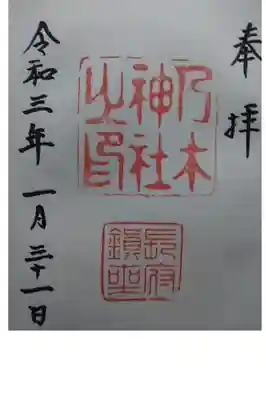 奉拝
乃木
神社
之印
長府
鎮座
令和三年一月三十一日